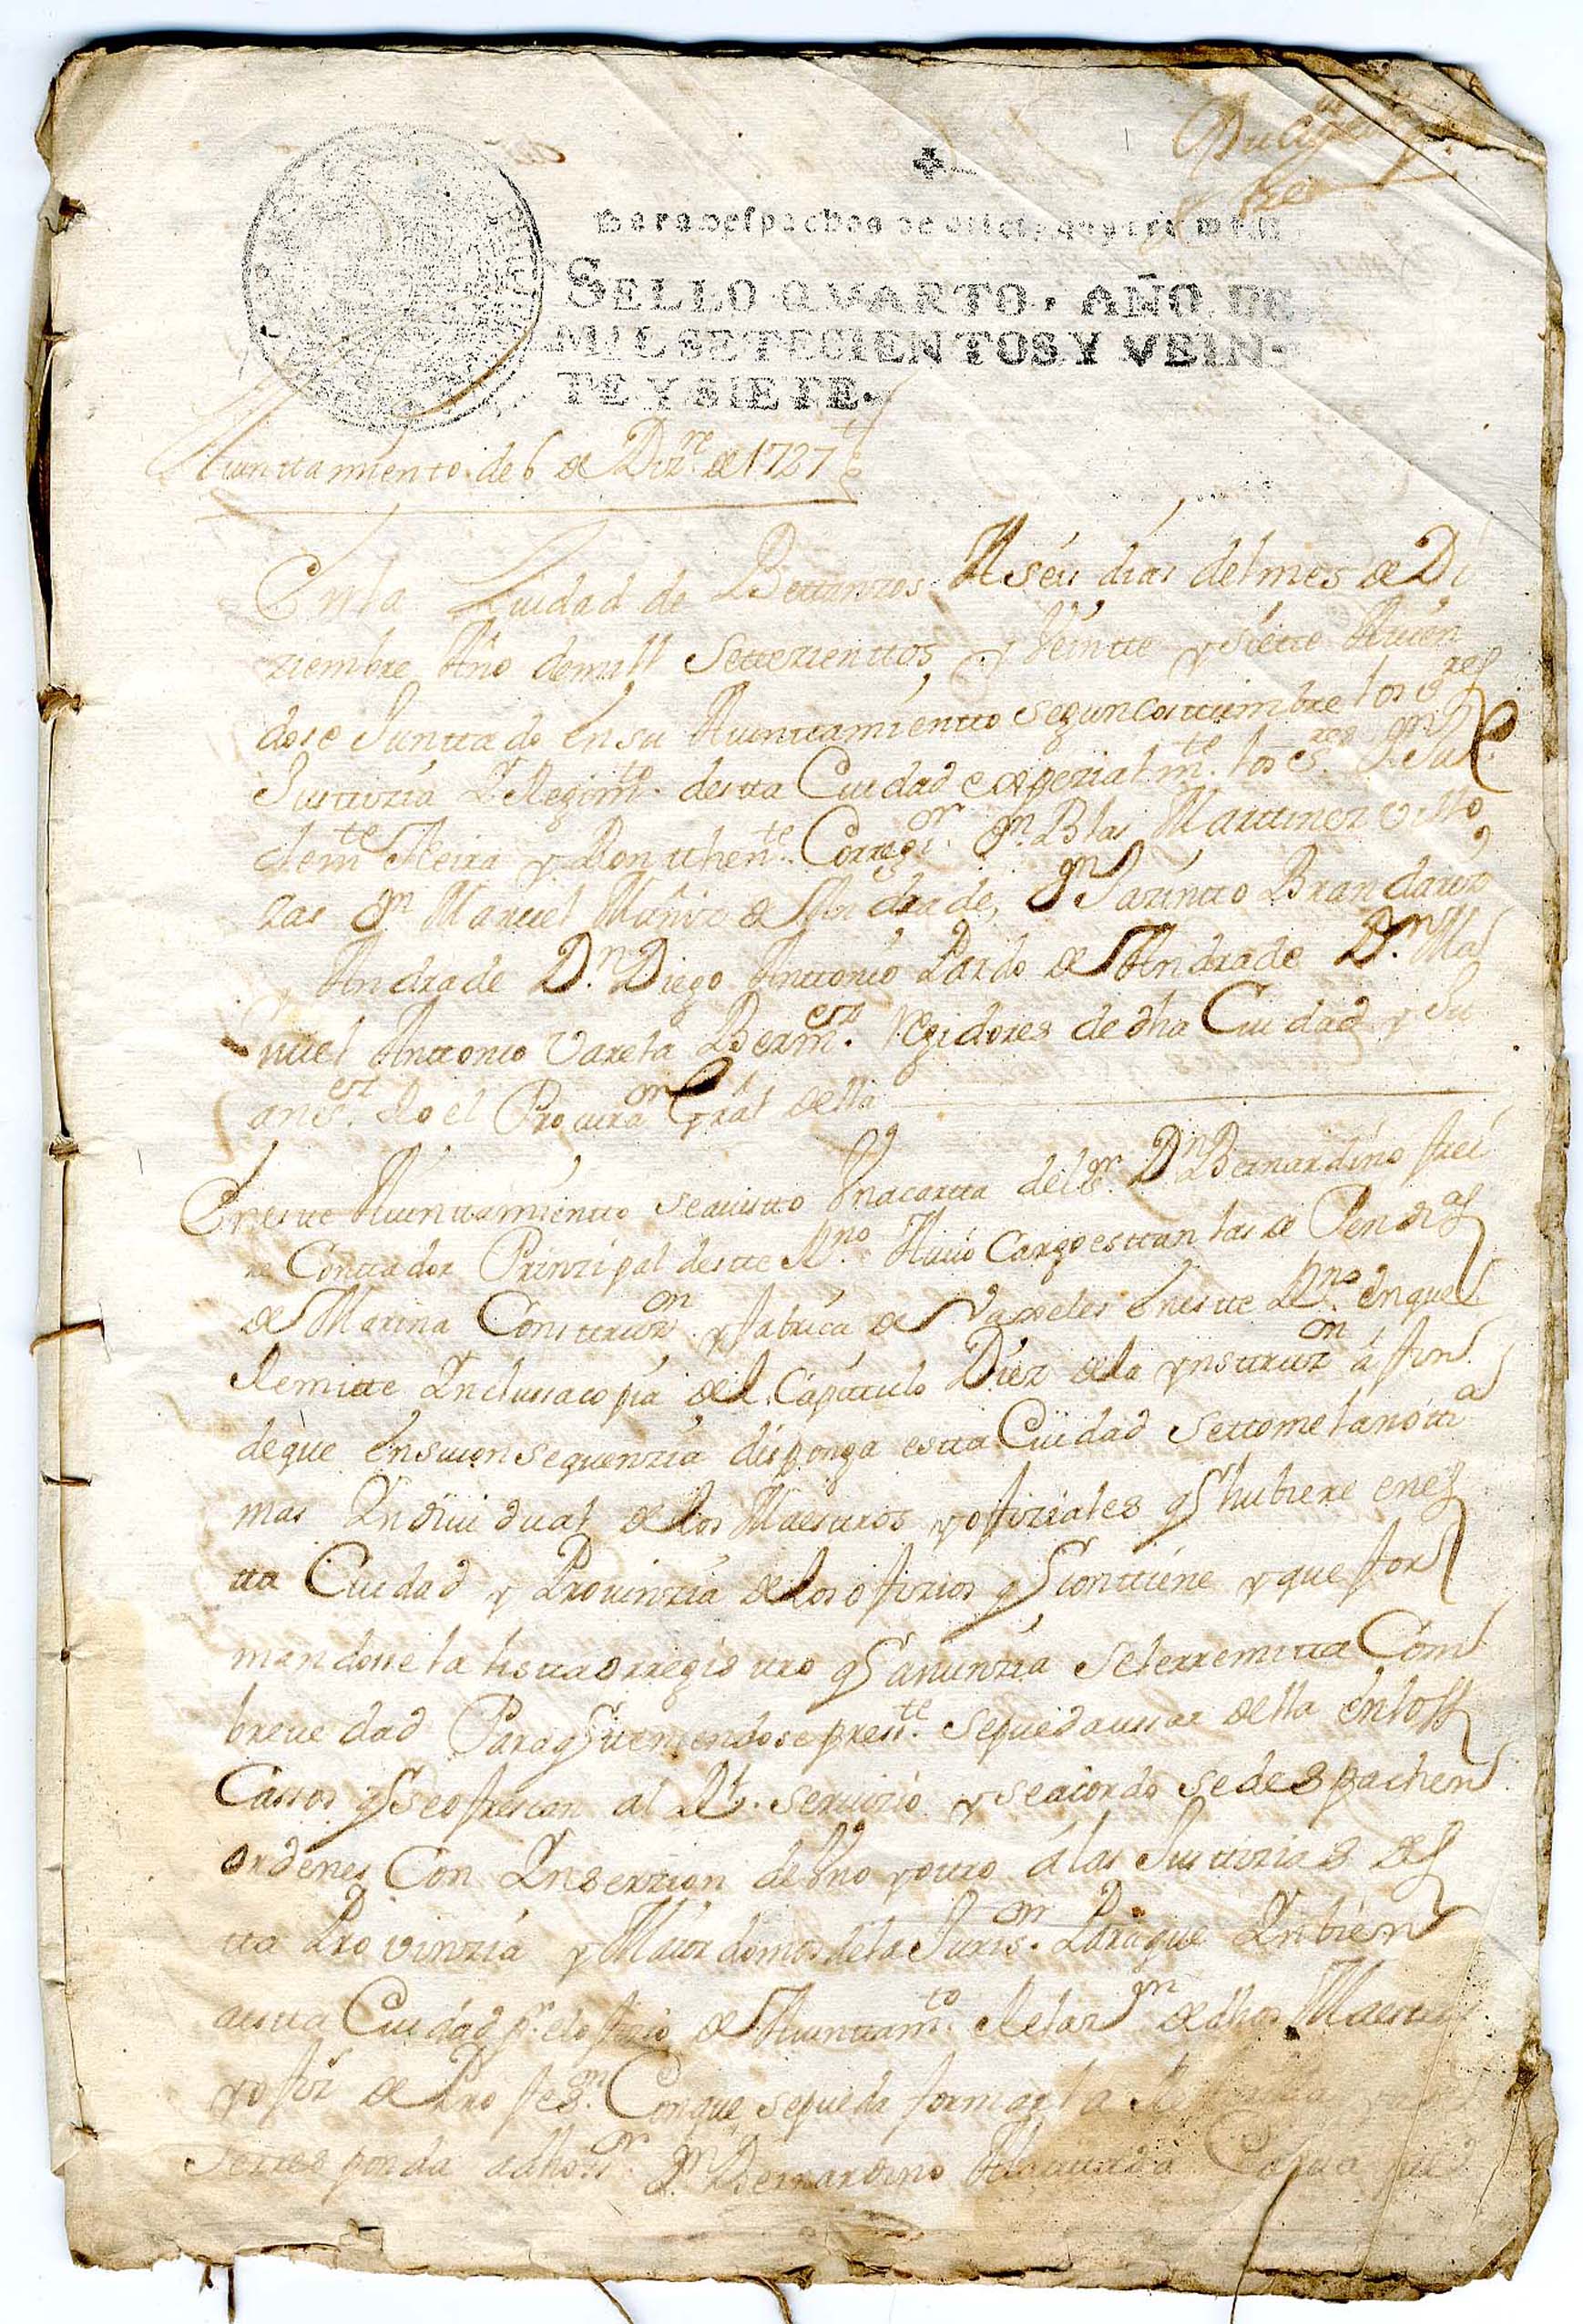 +
Para despachos de oficio quatro mrs.
SELLO QVARTO, AÑO DE
MIL SETECIENTOS Y VEIN-
TE Y SIETE.
Aiunttamiento de 6 de Diz.re de 1727
En la Ciudad de Bettanzos A séis días del mes de Di
ziembre Año de mill Settezienttos y Veintte y siette Auien
dose Junttado en su Aiunttamientto segun costtumbre los s.res
Justtizia Y Regim.to destta Ciudad espezialm.te los s.res D.n
Clem.te Neira y Then.te Corregi.or D.n Blas Marttinez Villo
zas D.n Manuel Muñiz de Andrade, D.n Jazintto Brandariz
Andrade D.n Diego Anttonio Pardo de Andrade D.n Ma
nuel Anttonio Varela Berm.ez regidores de dha Ciudad y Ju
anes.ez Procura.or Gral della
En este Aiunttamientto se a visto Una cartta del s.r D.n Bernardino frei
re Conttador Prinzipal destte R.no A cuio Cargo esttan las de Rendas
de Marina Consttruz.on y fabrica de Vaxeles en este R.no en que
Remitte Yn clussa copia del Capittulo Diez de la Ynsttruz.on á fin
de que en su consequenzia disponga estta Ciudad se ttome la notti.a
mas Yndiuidual de los Maesttros y ofiziales q hubiere en es
tta Ciudad y Prouinzia de los ofizios q conttiene y que for
mandose la listta o rregisttro q anunzia se le rremitta Com
breuedad Para q tteniendose pres.te se pueda ussar della en los
Cassos q se ofrescan al R.l seruizio y se acordo se despachen
ordenes Con Ynserzion de Uno y ottro á las Justtizias des
tta Provinzia y Maiordomos de la Juris.on Para que Ynbien
a estta Ciudad p.r el ofizio de Aiunttam.to Relaz.on de dhos Maesttros
y ofiz de Profes.on Con que se pueda formar la
se rresponda a dho s.r D.n Bernardino